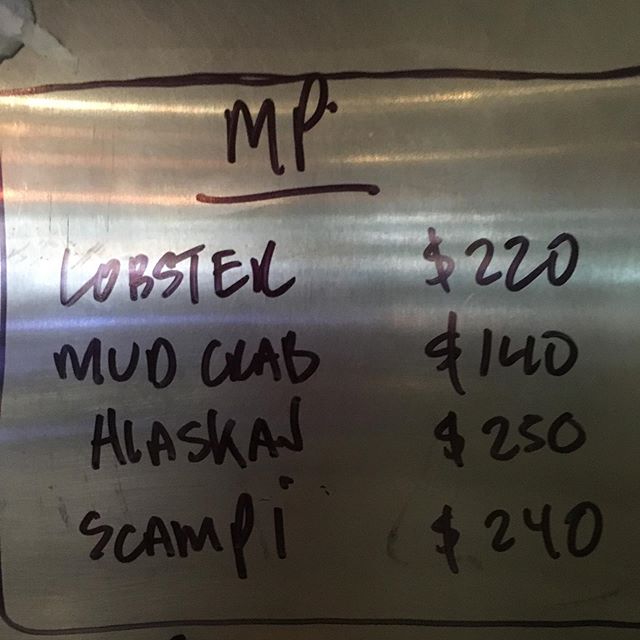 MP.
LOBSTER $220
MUD CRAB $140
ALASKAN $250
SCAMPI $240